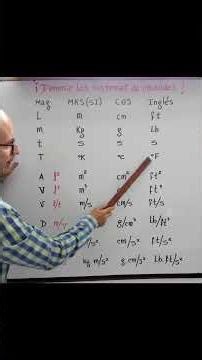 ¡Domina los sistemas de unidades!
Mag. MKS(SI) CGS Inglés
L m cm ft
m Kg g Lb
t s s s
T °K °C °F
A m² cm² ft²
V m³ ft³
m/s cm/s ft/s
D g/cm³ Lb/ft³
/s² cm/s² ft/s²
kg m/s² g cm/s² Lb ft/s²